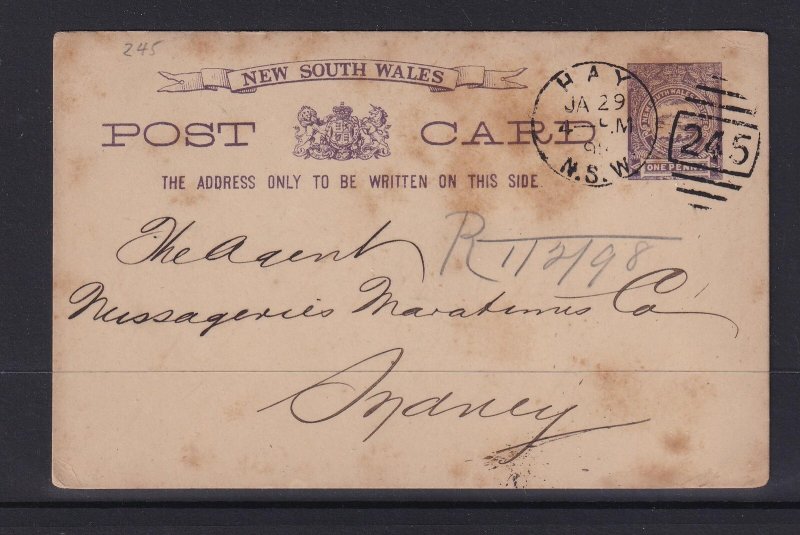 245
NEW SOUTH WALES
POST CARD
THE ADDRESS ONLY TO BE WRITTEN ON THIS SIDE.
HAY
JA 29
N.S.W
245
ONE PENNY
R 1/2/98
The Agent
Messageries Maratimes Co
Sydney